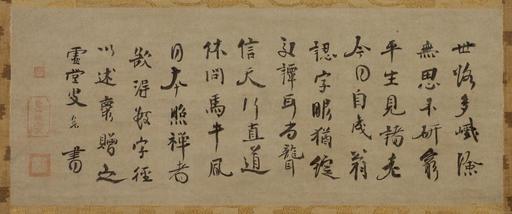 世路多巇嶮
無思不研窮
平生見諸老
今日自成翁
認字眼猶綻
交譚耳尚聾
信天行直道
休問馬牛風
日本照禪者
欲得數字徑
以述懷贈之
虛堂叟 書